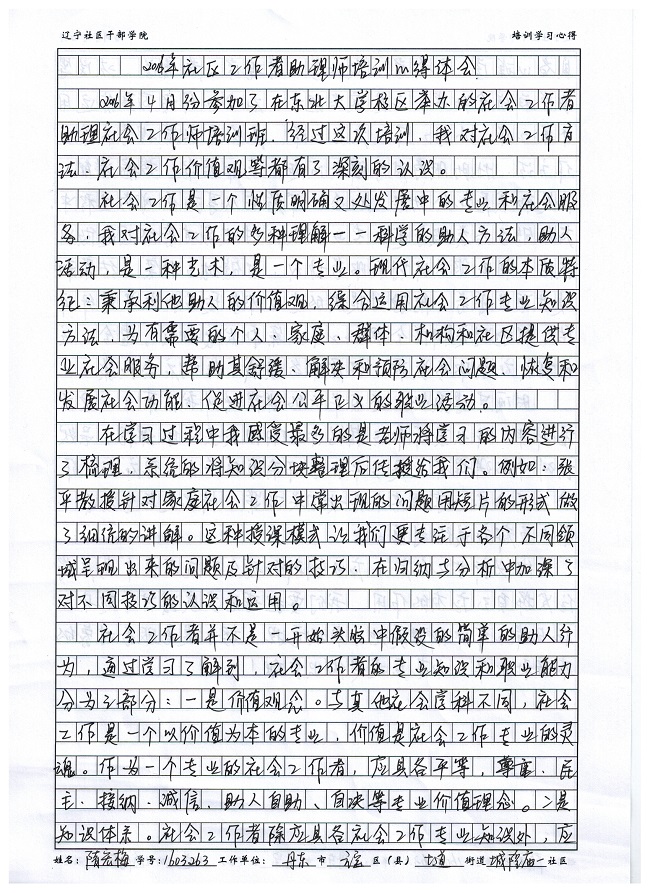 辽宁社区干部学院 培训学习心得
2016年社区工作者助理师培训心得体会
2016年4月份参加了在东北大学校区举办的社会工作者
助理社会工作师培训班,经过这次培训,我对社会工作方
法、社会工作价值观等都有了深刻的认识。
社会工作是一个性质明确又处发展中的专业和社会服
务,我对社会工作的多种理解——科学的助人方法,助人
活动,是一种艺术,是一个专业。现代社会工作的本质特
征:秉承利他助人的价值观,综合运用社会工作专业知识
方法,为有需要的个人、家庭、群体、机构和社区提供专
业社会服务,帮助其舒缓、解决和预防社会问题,恢复和
发展社会功能,促进社会公平正义的职业活动。
在学习过程中我感受最多的是老师将学习的内容进行
了梳理,系统的将知识分块整理后传授给我们。例如:张
平教授针对家庭社会工作中常出现的问题用短片的形式做
了细致的讲解。这种授课模式让我们更专注于各个不同领
域呈现出来的问题及针对的技巧,在归纳与分析中加深了
对不同技巧的认识和运用。
社会工作者并不是一开始头脑中假设的简单的助人行
为,通过学习了解到,社会工作者的专业知识和职业能力
分为三部分:一是价值观念。与其他社会学科不同,社会
工作是一个以价值为本的专业,价值是社会工作专业的灵
魂。作为一个专业的社会工作者,应具备平等,尊重、民
主、接纳、诚信、助人自助、自决等专业价值理念。二是
知识体系。社会工作者除应具备社会工作专业知识外,应
姓名:隋宏梅 学号:1603263 工作单位: 丹东 市 元宝 区(县) 七道 街道 城隍庙 社区